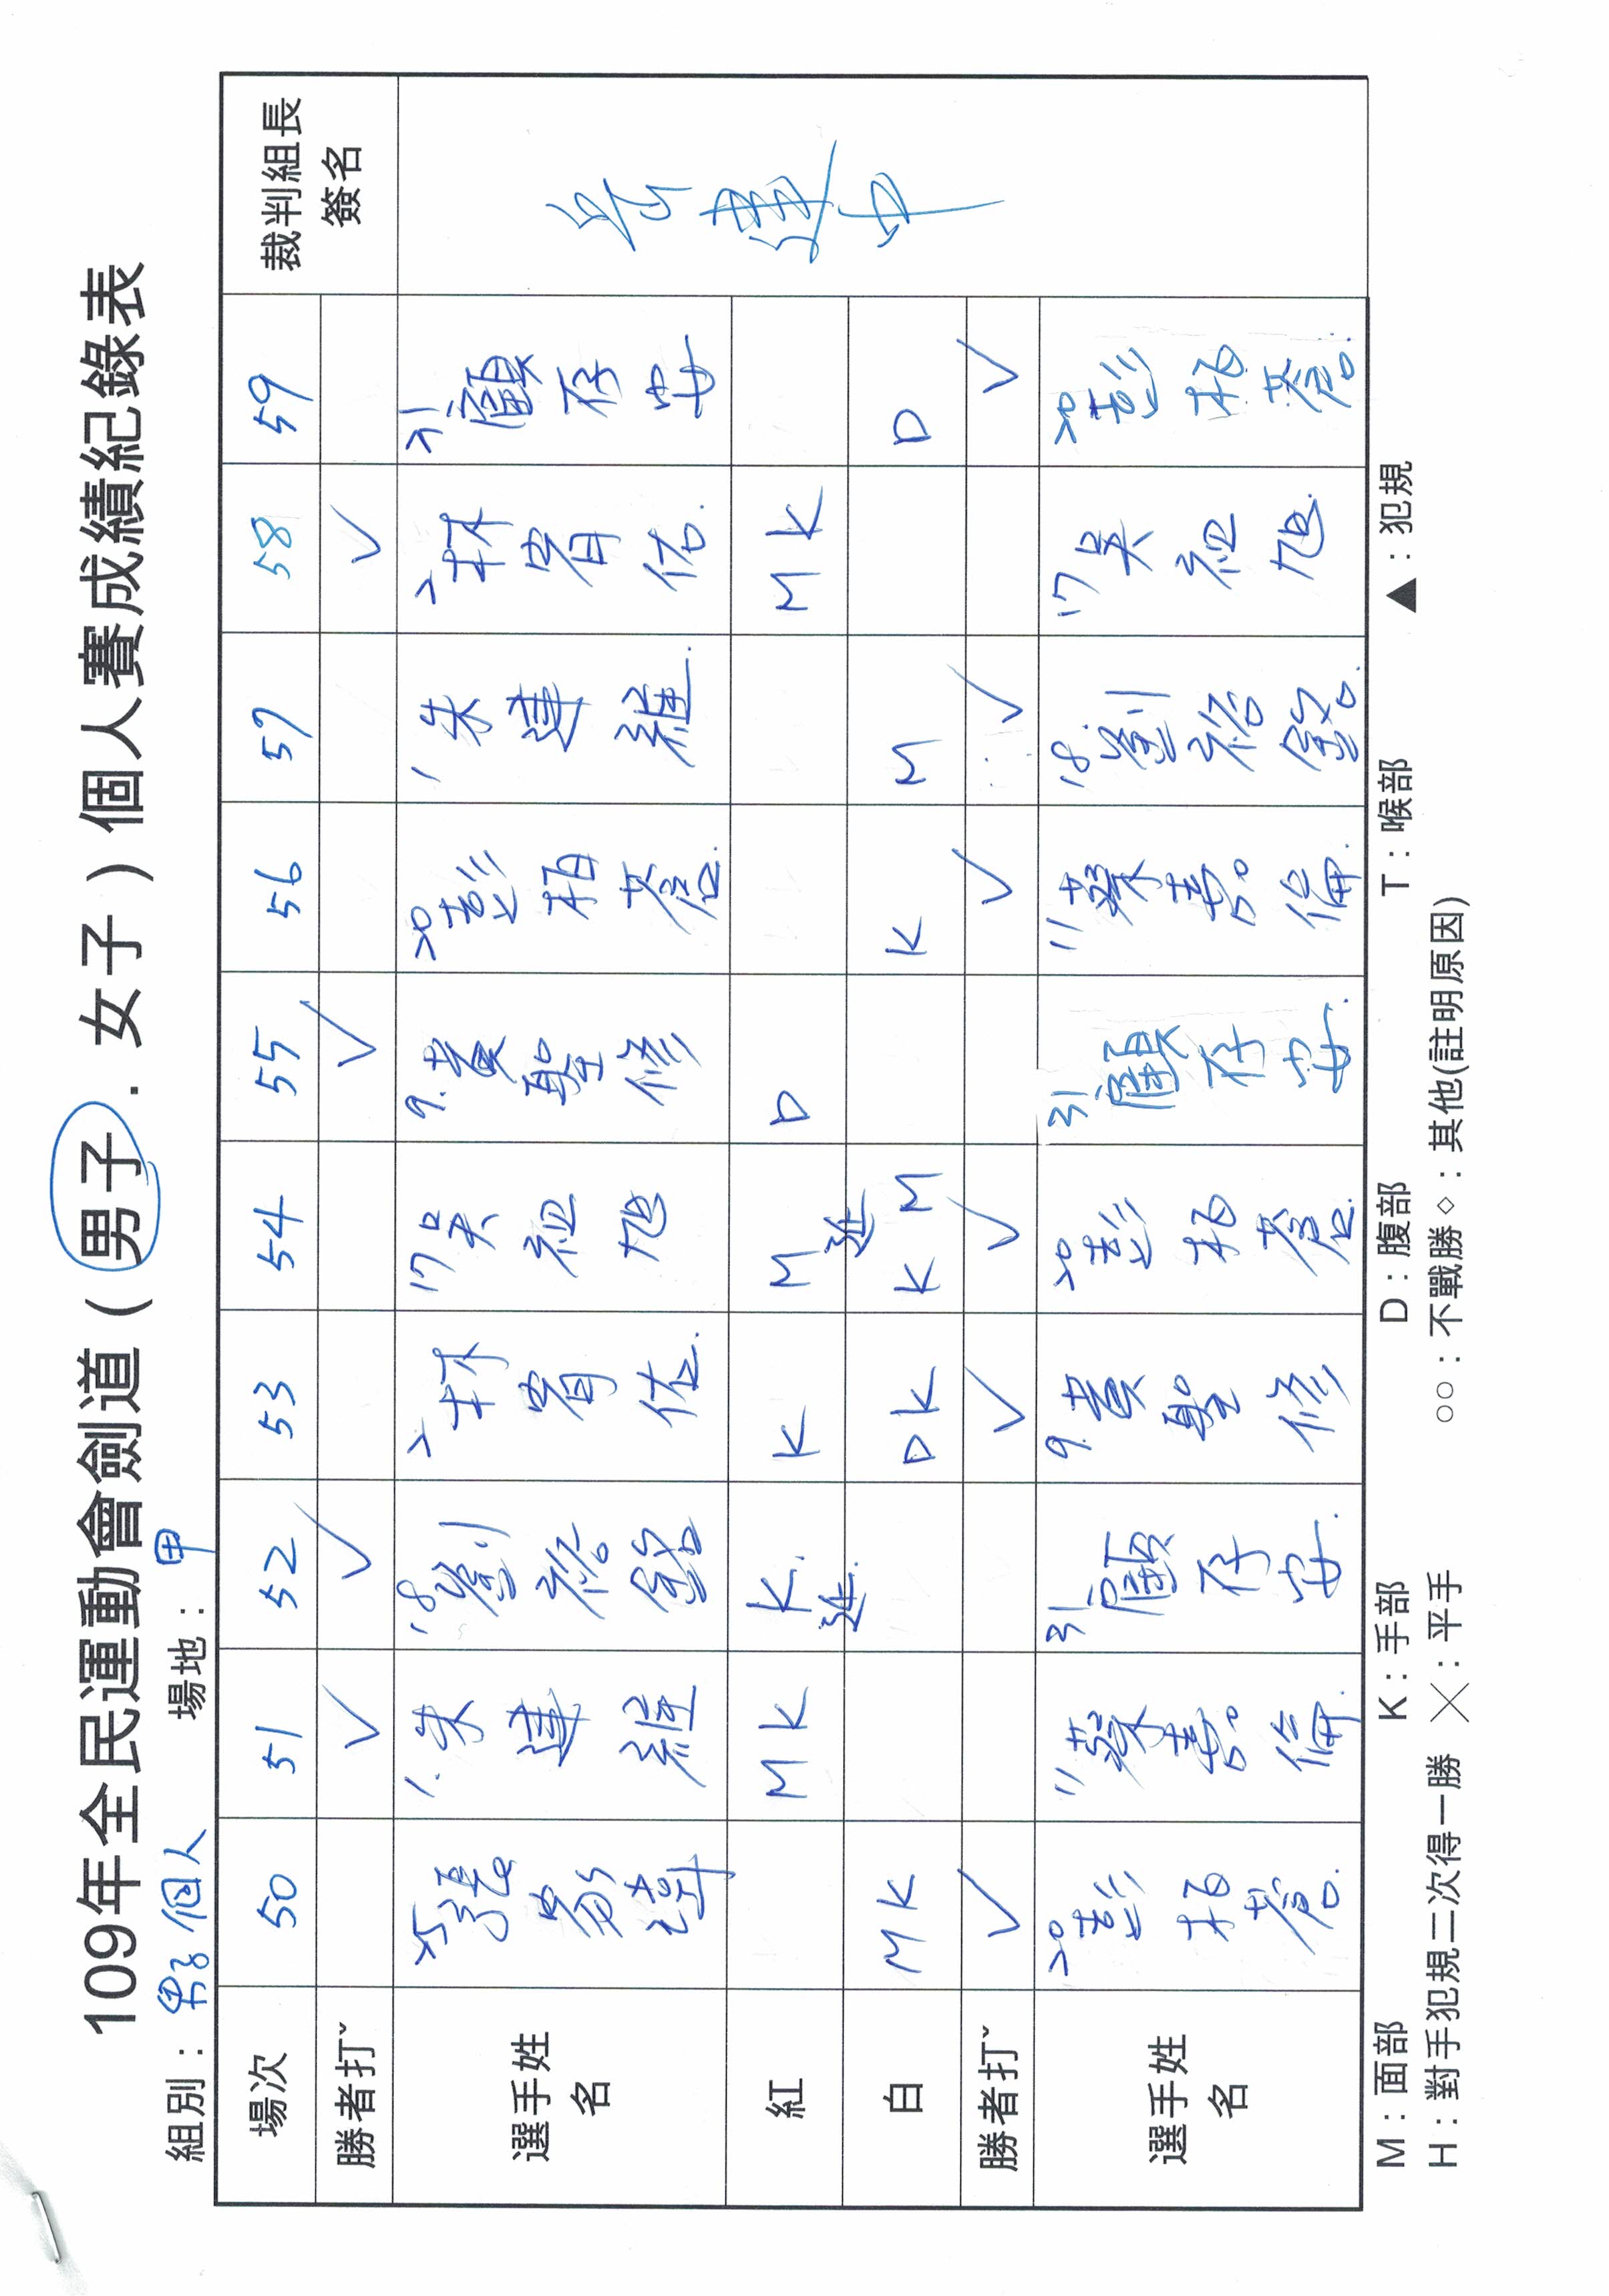 109年全民運動會劍道（男子．女子）個人賽成績紀錄表
組別：男子個人 場地：甲
場次 50 51 52 53 54 55 56 57 58 59 裁判組長簽名
勝者打ˇ ✓ ✓ ✓ ✓
選手姓名 25張 1.朱建維 18劉裕 2林宥佑 17吳祖旭 9.黃聖修 20彭柏蒼 1朱建維 2林宥佑 21顧存安
紅 MK K.延 K M延 D MK
白 MK DK KM K M D
勝者打ˇ ✓ ✓ ✓ ✓ ✓ ✓
選手姓名 20彭柏蒼 11蔡喜倫 21顧存安 9.黃聖修 20彭柏蒼 21顧存安 11蔡喜倫 18劉裕 17吳祖旭 20彭柏蒼
M：面部 K：手部 D：腹部 T：喉部 ▲：犯規
H：對手犯規二次得一勝 ╳：平手 ○○：不戰勝 ◇：其他(註明原因)